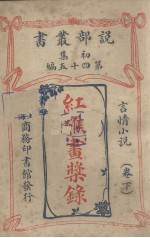 說部叢書
初集
第四十五編
言情小說
(卷下)
紅礁畫槳錄
上海商務印書館發行